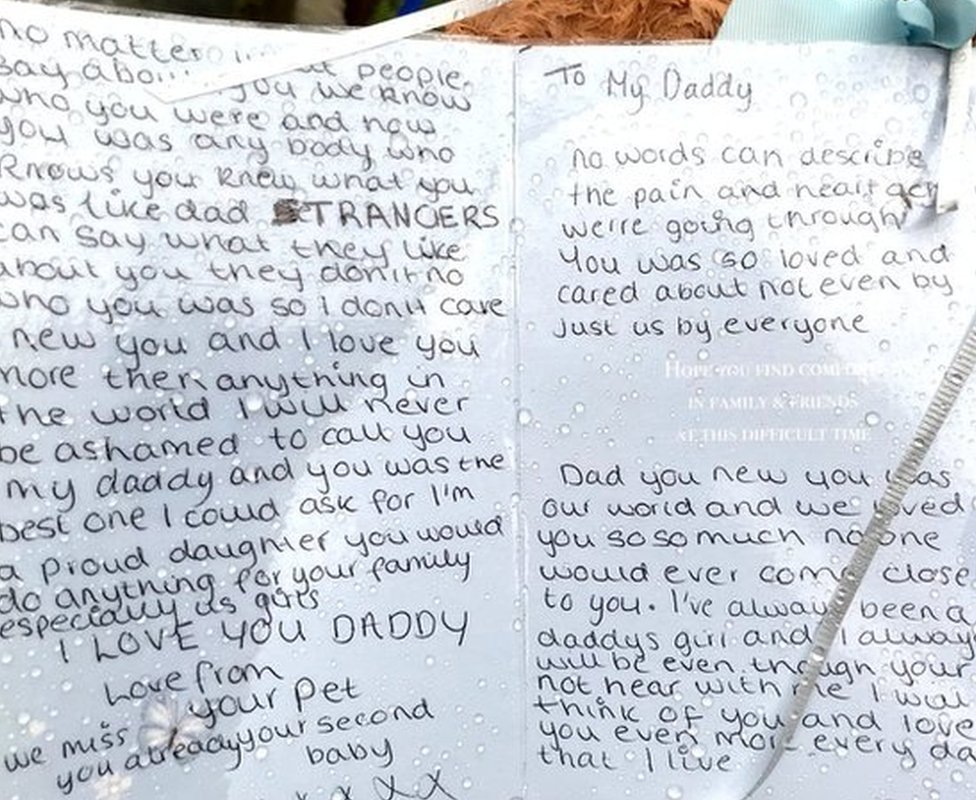 no matter
say people
you we know
who you were and how
you was any body who
knows you knew what you
was like dad STRANGERS
can say what they like
about you they don't no
who you was so I don't care
new you and I love you
more then anything in
the world I will never
be ashamed to call you
my daddy and you was the
best one I could ask for I'm
a proud daughter you would
do anything for your family
especially us girls
I LOVE YOU DADDY
Love from
your pet
we miss your second
you already baby
x x x x
To My Daddy
no words can describe
the pain and
we're going through
You was so loved and
cared about not even by
just us by everyone
HOPE YOU FIND COMFORT
IN FAMILY & FRIENDS
AT THIS DIFFICULT TIME
Dad you new you was
our world and we loved
you so so much no one
would ever come close
to you. I've always been a
daddys girl and I always
will be even though your
not hear with me I will
think of you and love
you even more every da
that I live